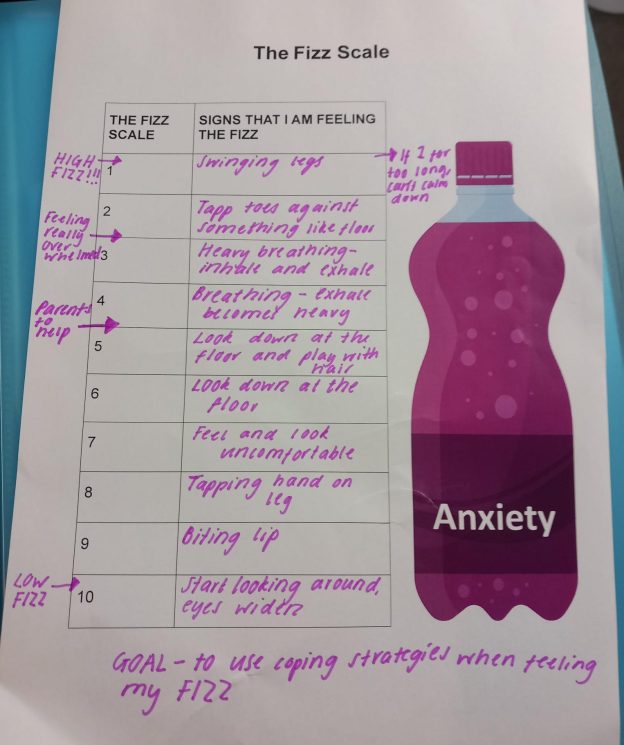 The Fizz Scale
THE FIZZ
SCALE
SIGNS THAT I AM FEELING
THE FIZZ
HIGH
FIZZ!!!
1
Swinging legs
If I for
too long
can't calm
down
2
Tapp toes against
something like floor
Feeling
really
over
whelmed
3
Heavy breathing-
inhale and exhale
4
Breathing - exhale
becomes heavy
Parents
to
help
5
Look down at the
floor and play with
hair
6
Look down at the
floor
7
Feel and look
uncomfortable
8
Tapping hand on
leg
9
Biting lip
LOW
FIZZ
10
Start looking around,
eyes widen
Anxiety
GOAL - to use coping strategies when feeling
my FIZZ